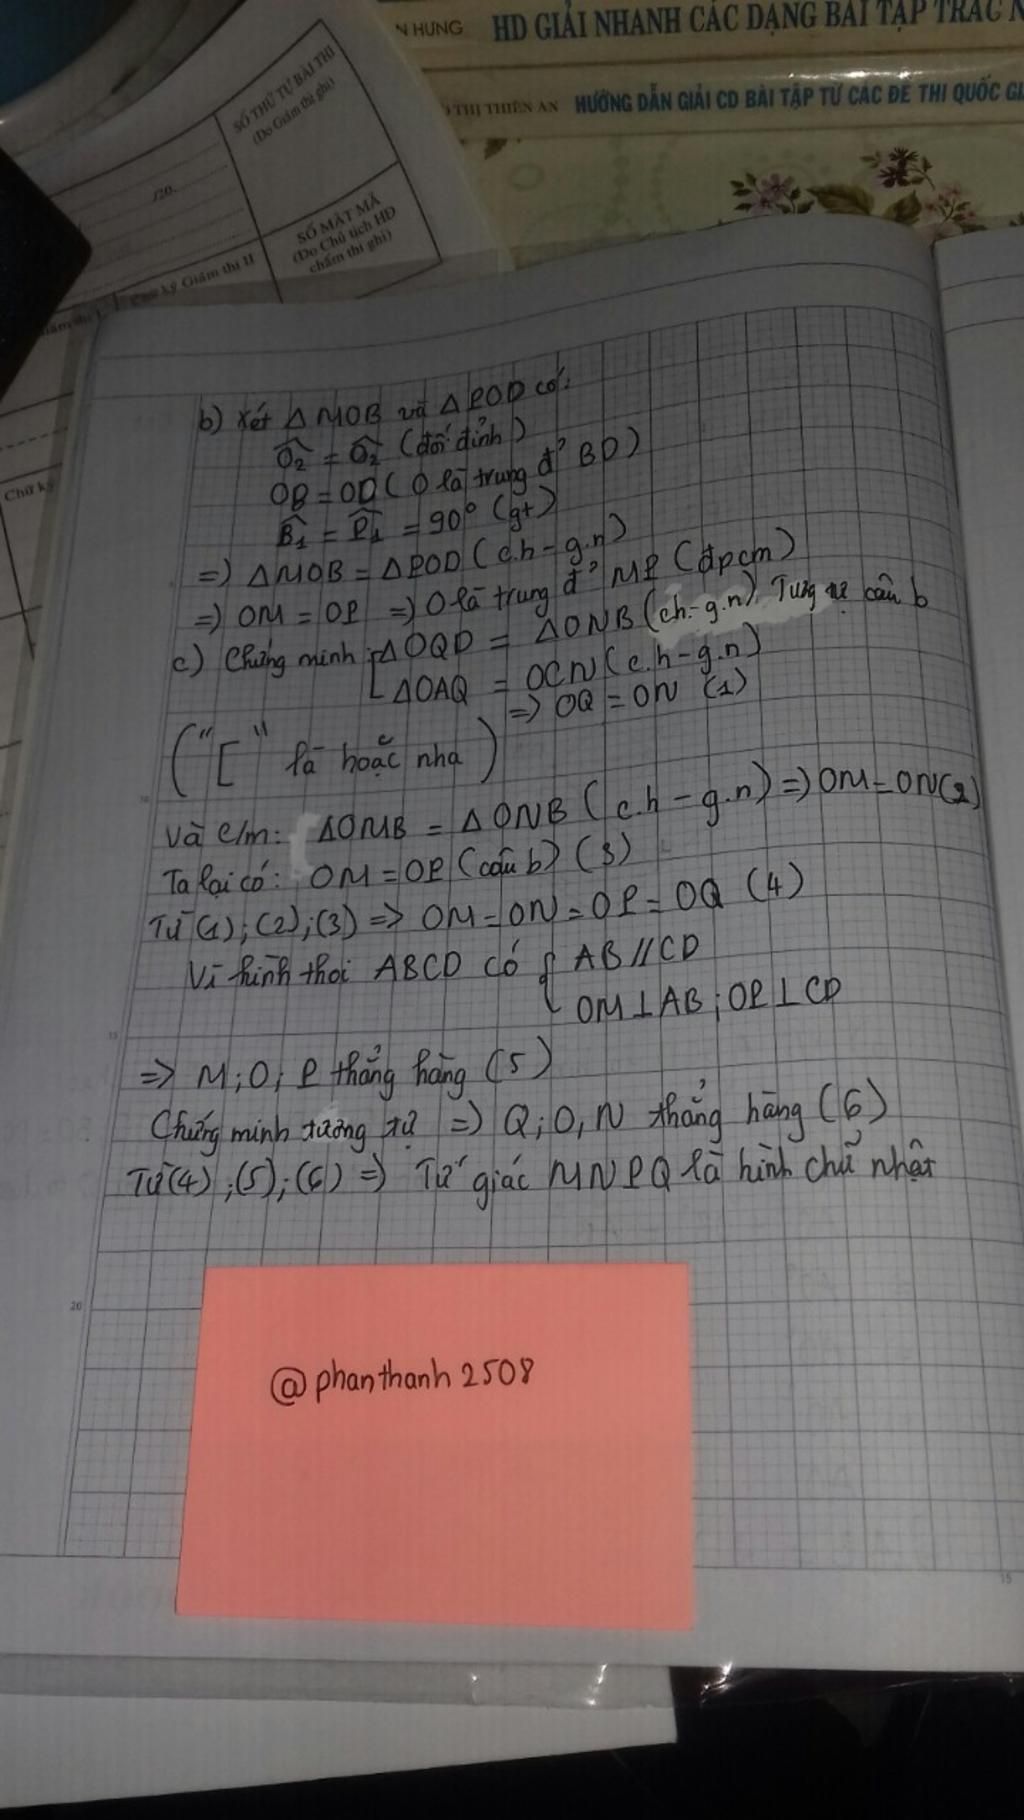 N HƯNG HD GIẢI NHANH CÁC DẠNG BÀI TẬP TRẮC N
THỊ THIÊN AN HƯỚNG DẪN GIẢI CD BÀI TẬP TỪ CÁC ĐỀ THI QUỐC GI
SỐ THỨ TỰ BÀI THI
(Do Giám thị ghi)
/20
SỐ MẬT MÃ
(Do Chủ tịch HĐ
chấm thi ghi)
Chữ ký Giám thị II
Chữ ký
b) Xét △MOB và △POD có:
Ô₂ = Ô₂ (đối đỉnh)
OB = OD (O là trung đ' BD)
B̂₁ = P̂₁ = 90° (gt)
=) △MOB = △POD (c.h - g.n)
=) OM = OP =) O là trung đ' MP (đpcm)
c) Chứng minh: [△OQD = △ONB (ch - g.n). Tương tự câu b
△OAQ = OCN (c.h - g.n)
=> OQ = ON (1)
("[" là hoặc nha)
Và c/m: △OMB = △ONB (c.h - g.n) =) OM = ON (2)
Ta lại có: OM = OP (câu b) (3)
Từ (1); (2); (3) => OM = ON = OP = OQ (4)
Vì hình thoi ABCD có { AB // CD
OM ⊥ AB; OP ⊥ CD
=> M; O; P thẳng hàng (5)
Chứng minh tương tự =) Q; O, N thẳng hàng (6)
Từ (4); (5); (6) =) Tứ giác MNPQ là hình chữ nhật
10
15
20
15
@phanthanh2508